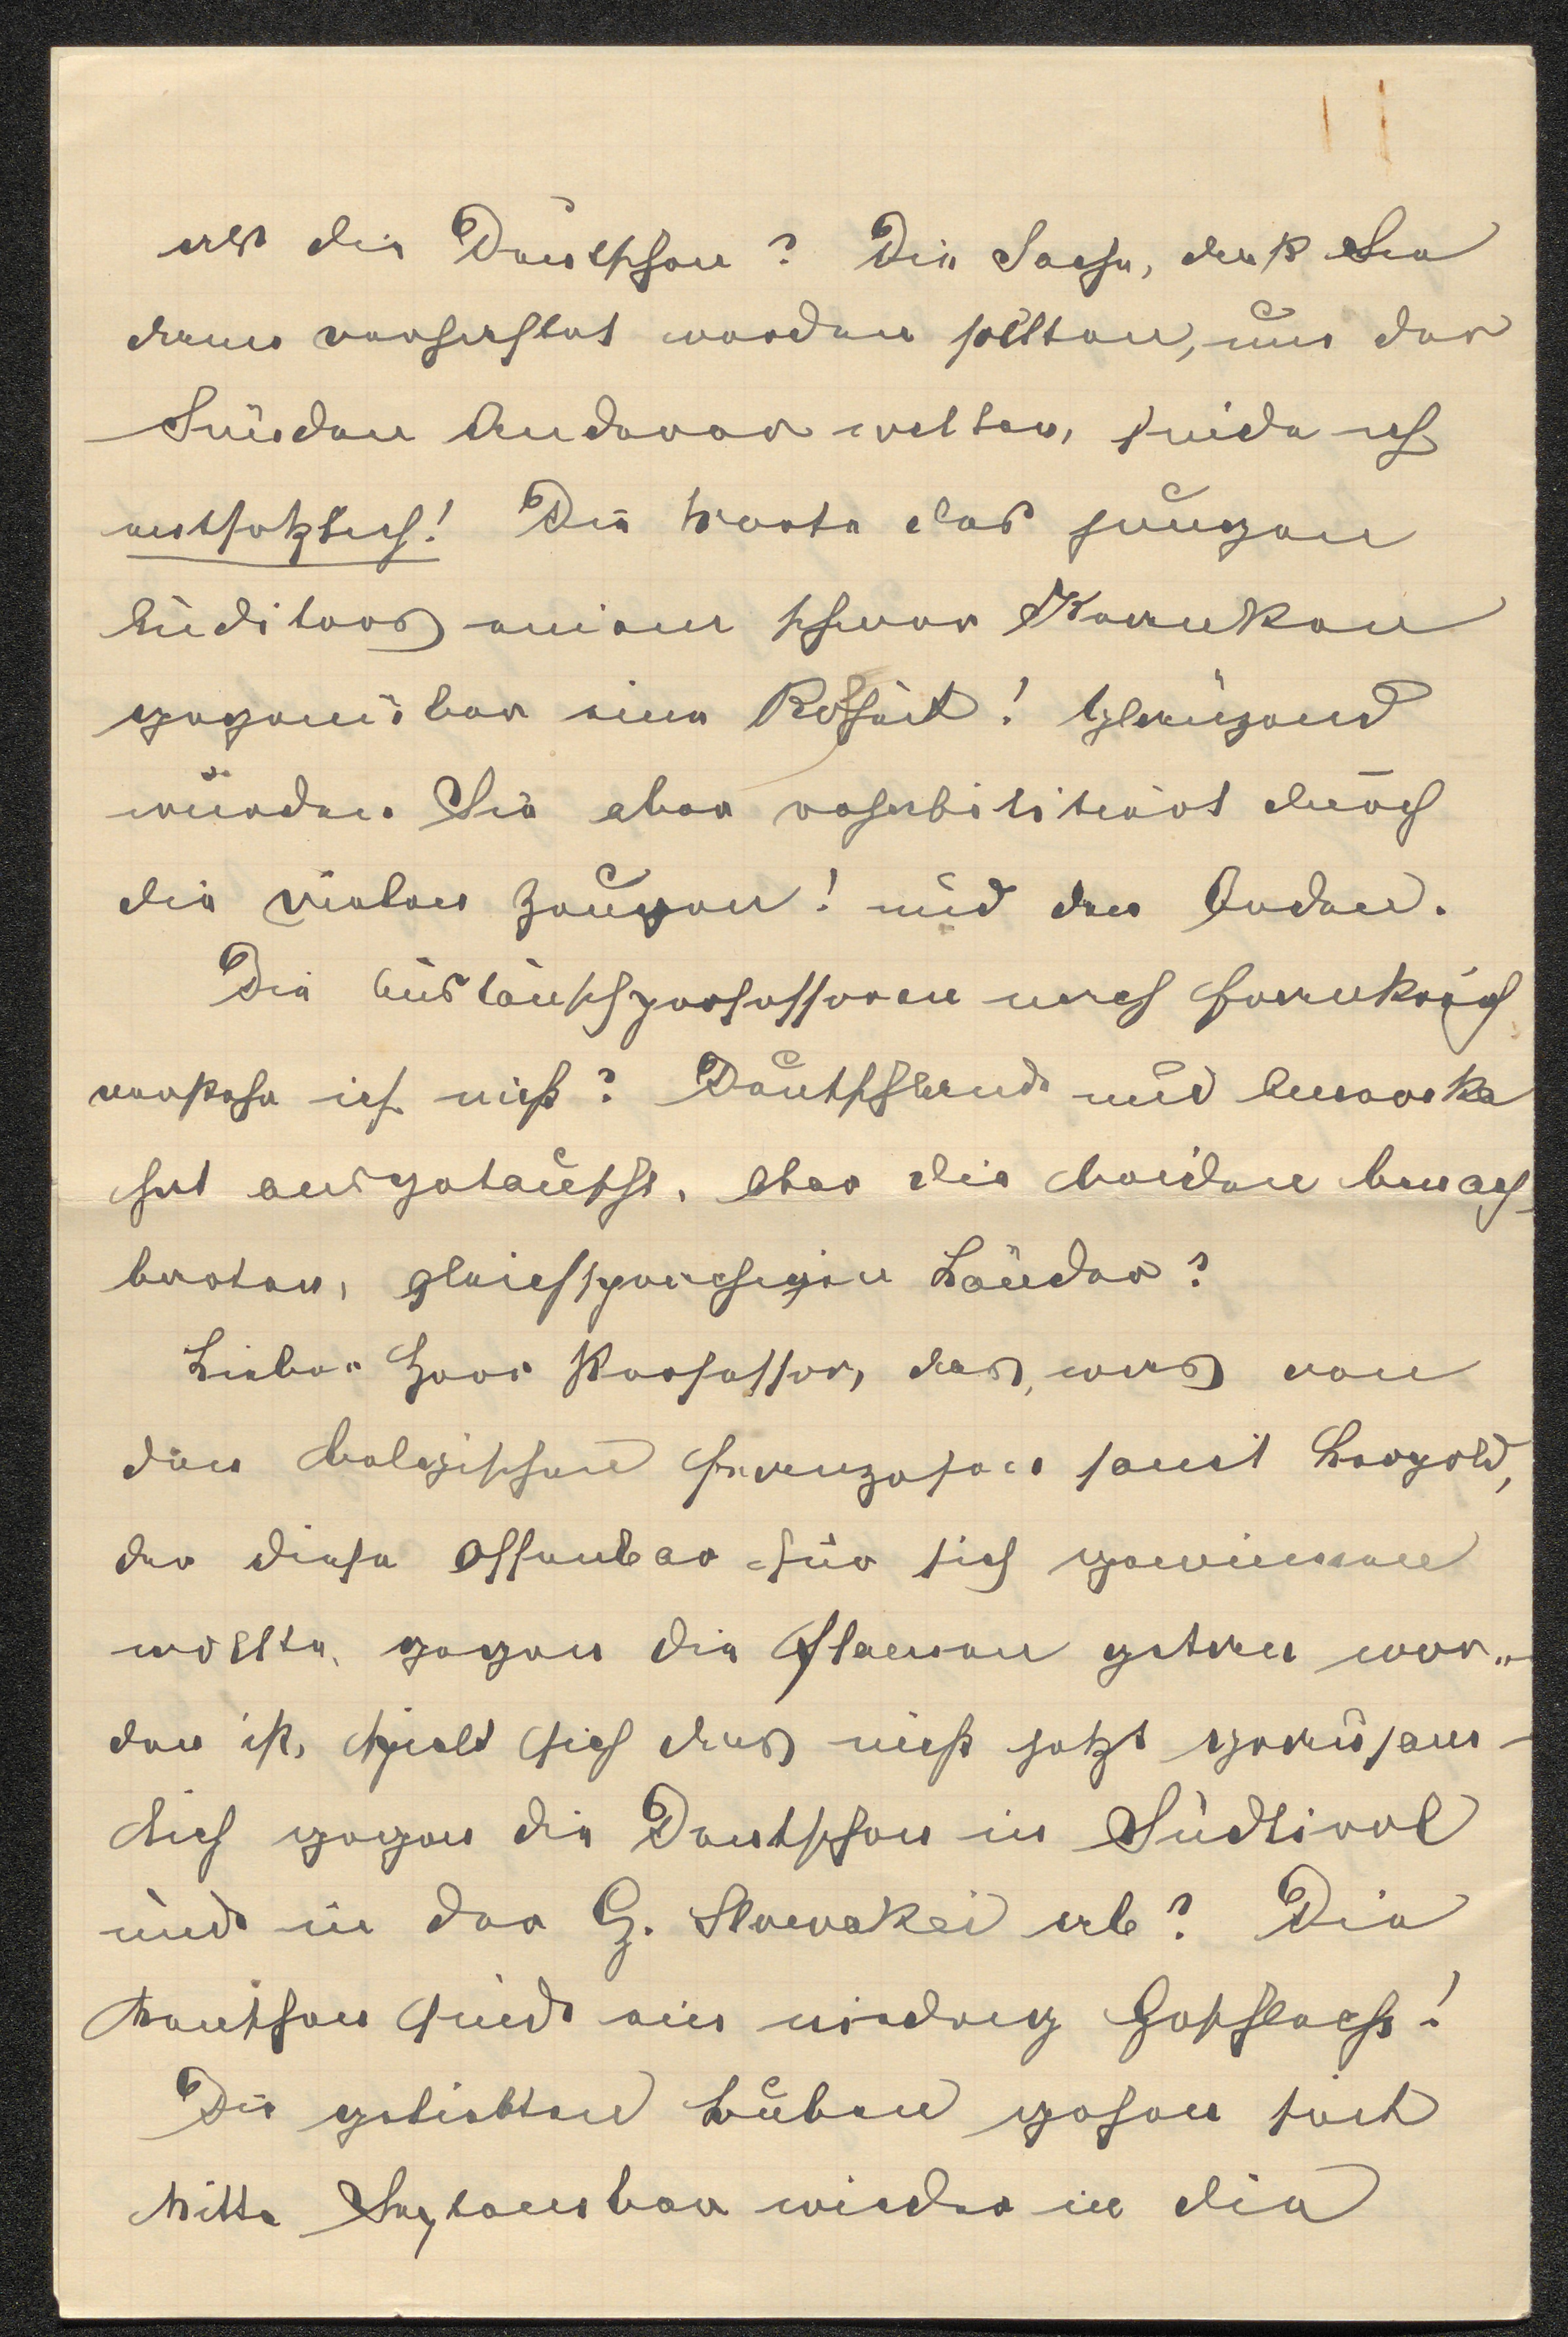 als die Deutschen? Die Sache, daß Sie
dann verhaftet werden sollten, um der
Sünden Anderer willen, finde ich
entsetzlich! Die Worte des jungen
Auditors einem schwer Kranken
gegenüber eine Roheit! Glänzend
wurden Sie aber rehabilitiert durch
die vielen Zeugen! und den Orden.
Die Austauschprofessoren nach Frankreich
verstehe ich nicht? Deutschland und Amerika
hat ausgetauscht, aber die beiden benach-
barten, gleichsprachigen Länder?
Lieber Herr Professor, das, was von
den belgischen Franzosen samt Leopold,
der diese offenbar für sich gewinnen
wollte, gegen die Flamen getan wor-
den ist, spielt sich das nicht jetzt grausam-
lich gegen die Deutschen in Südtirol
und in der Tsch. Slovakei ab? Die
Menschen sind ein niedrig Geschlecht!
Die geliebten Buben gehen seit
Mitte September wieder in die